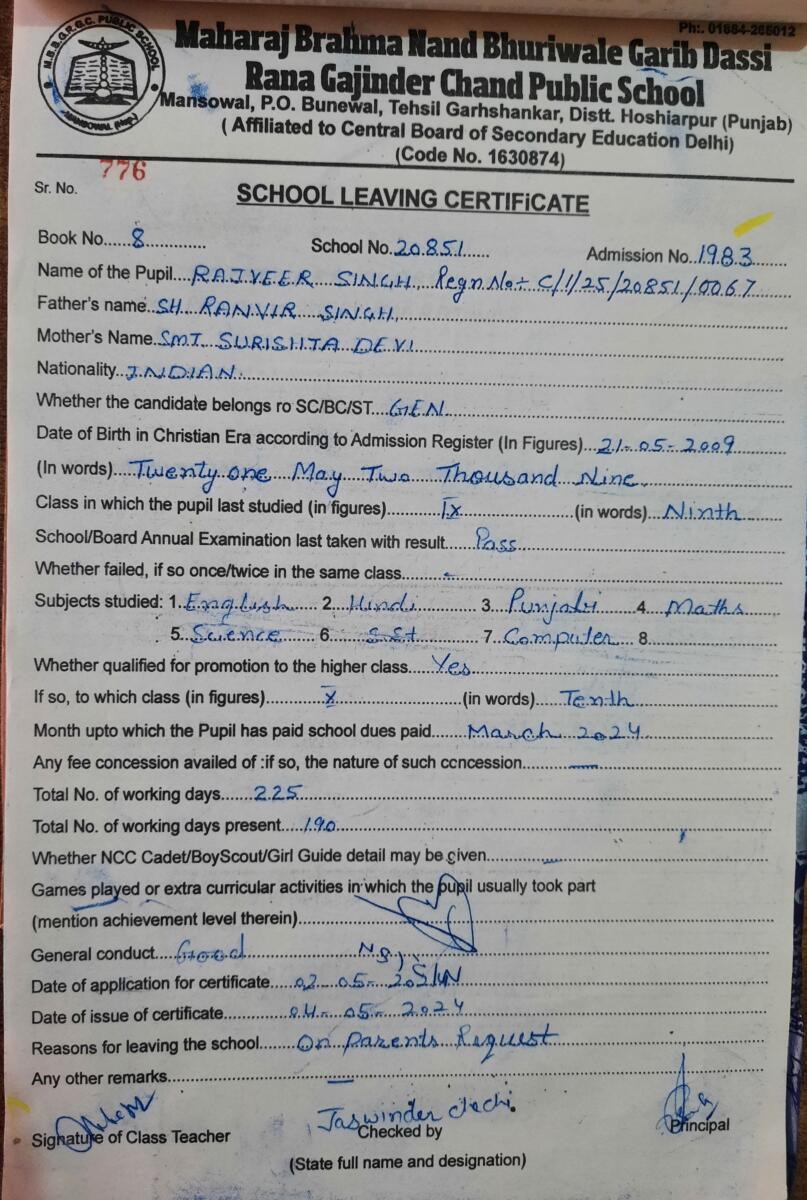 M.B.B.G.R.G.C. PUBLIC SCHOOL
MANSOWAL (Hsp.)
Ph:. 01884-265012
Maharaj Brahma Nand Bhuriwale Garib Dassi
Rana Gajinder Chand Public School
Mansowal, P.O. Bunewal, Tehsil Garhshankar, Distt. Hoshiarpur (Punjab)
( Affiliated to Central Board of Secondary Education Delhi)
(Code No. 1630874)
Sr. No. 776
SCHOOL LEAVING CERTIFiCATE
Book No......8............. School No.20851...... Admission No..1983.......
Name of the Pupil....RAJVEER SINGH, Regn No:- C/1/25/20851/0067
Father's name..SH. RANVIR SINGH,
Mother's Name..SMT. SURISHTA DEVI
Nationality...INDIAN
Whether the candidate belongs ro SC/BC/ST....GEN.
Date of Birth in Christian Era according to Admission Register (In Figures)...21-05-2009
(In words)....Twenty one May Two Thousand Nine.
Class in which the pupil last studied (in figures)..........IX....................(in words)...Ninth
School/Board Annual Examination last taken with result.....Pass
Whether failed, if so once/twice in the same class........-
Subjects studied: 1..English.... 2...Hindi...... 3...Punjabi...... 4....Maths
5..Science....... 6........S.St........ 7..Computer... 8..................
Whether qualified for promotion to the higher class....Yes
If so, to which class (in figures)...........X......................(in words)....Tenth
Month upto which the Pupil has paid school dues paid......March 2024
Any fee concession availed of :if so, the nature of such concession.........—
Total No. of working days......225
Total No. of working days present....190
Whether NCC Cadet/BoyScout/Girl Guide detail may be given............—
Games played or extra curricular activities in which the pupil usually took part
(mention achievement level therein)
General conduct....Good
Date of application for certificate....02-05-
Date of issue of certificate............04-05-2024
Reasons for leaving the school.......On Parents Request
Any other remarks..........—
Jaswinder
Signature of Class Teacher Checked by Principal
(State full name and designation)